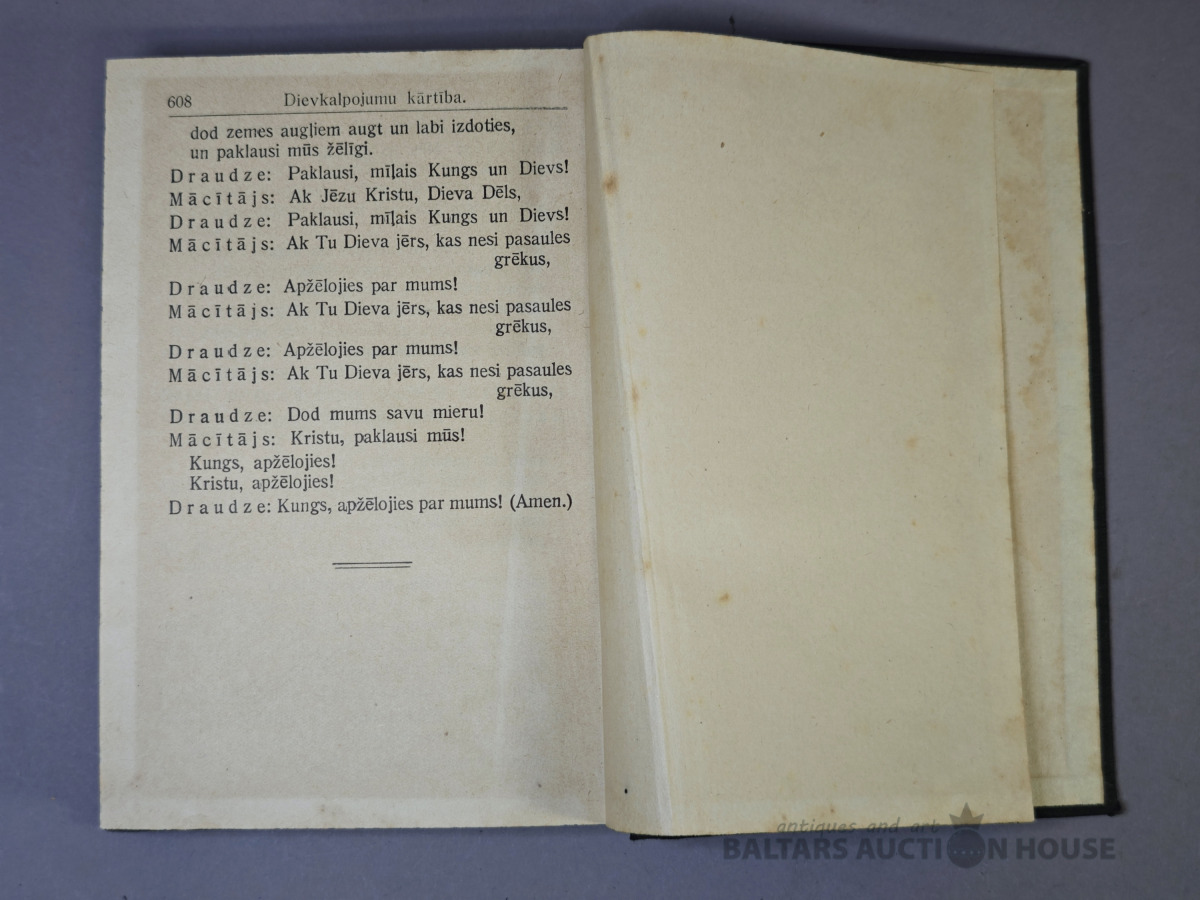 608 Dievkalpojumu kārtība.
dod zemes augļiem augt un labi izdoties,
un paklausi mūs žēlīgi.
Draudze: Paklausi, mīļais Kungs un Dievs!
Mācītājs: Ak Jēzu Kristu, Dieva Dēls,
Draudze: Paklausi, mīļais Kungs un Dievs!
Mācītājs: Ak Tu Dieva jērs, kas nesi pasaules
grēkus,
Draudze: Apžēlojies par mums!
Mācītājs: Ak Tu Dieva jērs, kas nesi pasaules
grēkus,
Draudze: Apžēlojies par mums!
Mācītājs: Ak Tu Dieva jērs, kas nesi pasaules
grēkus,
Draudze: Dod mums savu mieru!
Mācītājs: Kristu, paklausi mūs!
Kungs, apžēlojies!
Kristu, apžēlojies!
Draudze: Kungs, apžēlojies par mums! (Amen.)
antiques and art
BALTARS AUCTION HOUSE